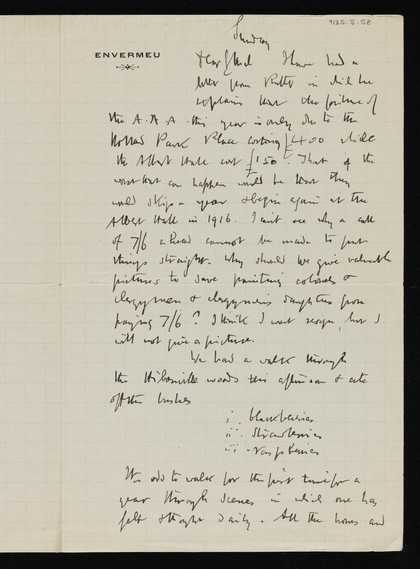 9125.5.58
Sunday
ENVERMEU
Dear Ethel I have had a
letter from Rutter in which he
explains that the failure of
the A.A.A. this year is only due to the
Holland Park Place costing £400 while
the Albert Hall cost £150. That of the
worst that can happen would be that they
would skip a year & begin again at the
Albert Hall in 1916. I can't see why a call
of 7/6 a head cannot be made to put
things straight. Why should we give valuable
pictures to save painting colonels &
clergymen & clergymen's daughters from
paying 7/6? I think I won't resign, but I
will not give a picture.
We had a walk through
the woods this afternoon & ate
off the bushes
i. blackberries
ii. strawberries
iii. raspberries
It is odd to walk for the first time for a
year through scenes in which one has
felt straight daily. All the hours and